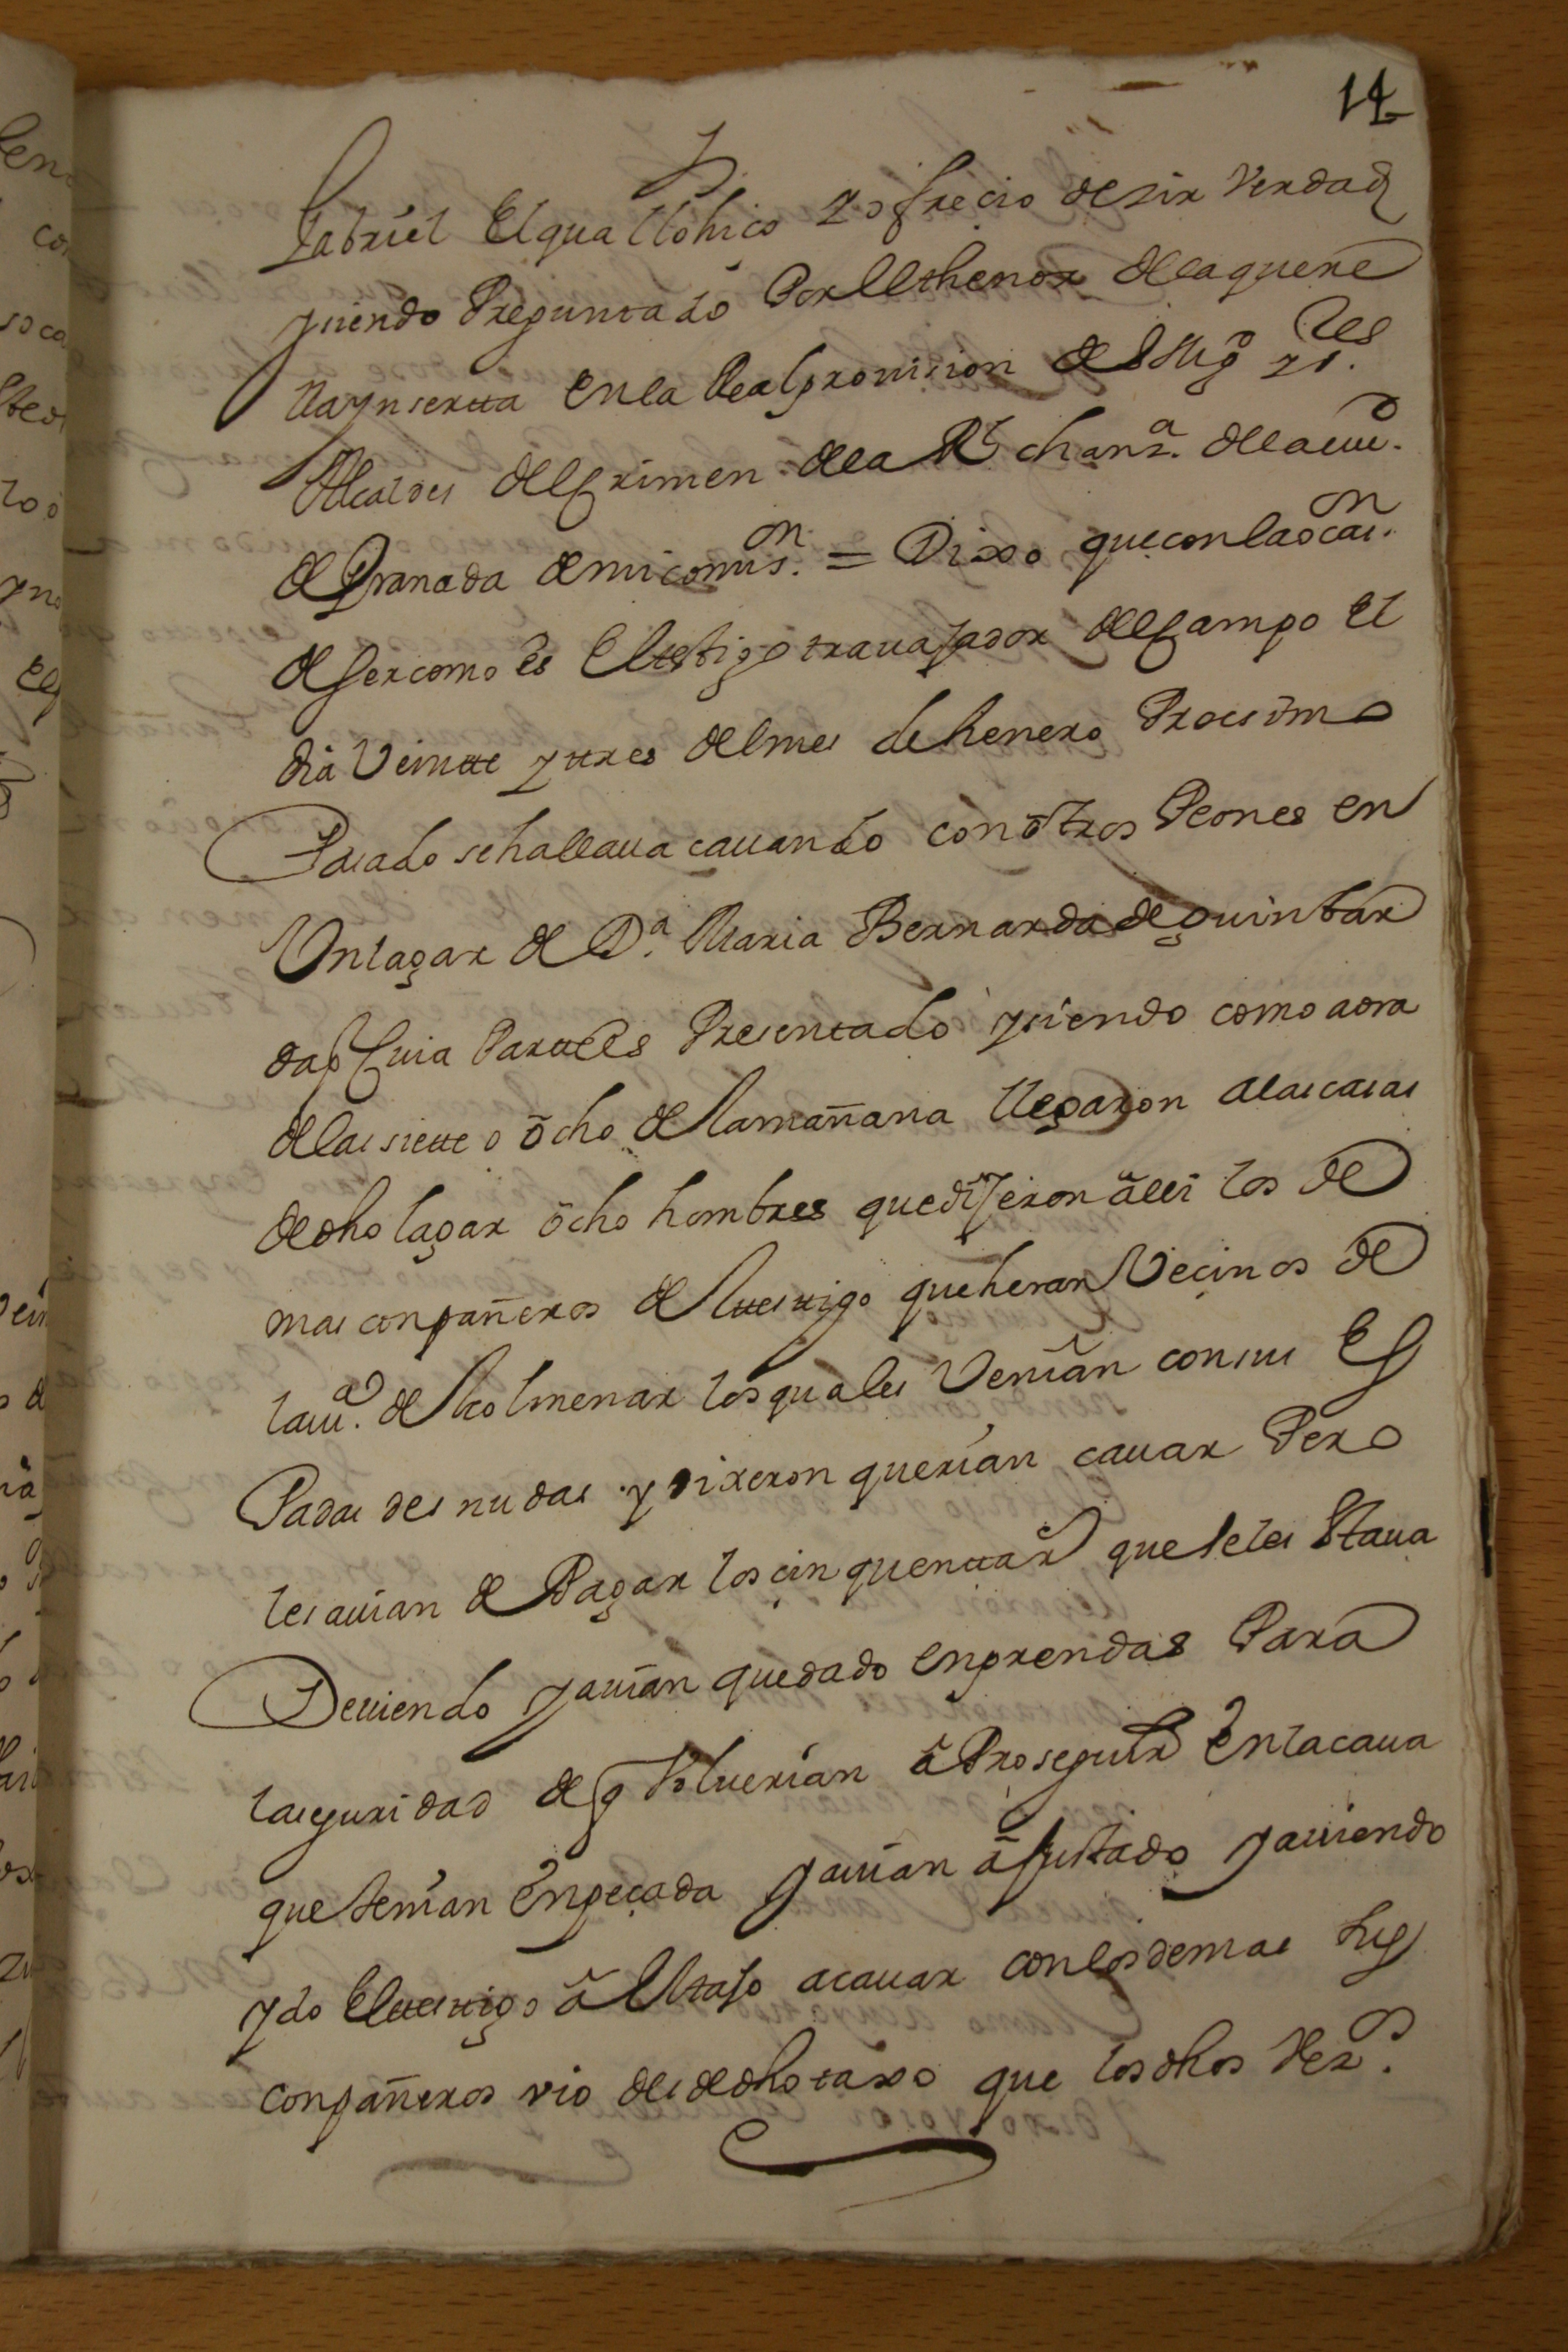 14
Gabriel El qual lo hiço y ofreçio desir Verdad
y siendo Preguntado Por El thenor de la quere
lla ynsertta en la Real provision de los sres
Alcaldes del Crimen de la Rl chanza. de la ciud.
de Granada de mi comison. = Dixo que con la ocaion.
de ser como es El testigo travajador del Campo El
dia Veintte y tres del mes de henero Procsimo
Pasado se hallava cavando con otros Peones en
Un lagar de Da. Maria Bernarda de quintar
da Cuia Partte es Presentado y siendo como aora
de las siette o ocho de la mañana llegaron a las casas
de dho lagar ocho hombres que dijeron alli los de
mas conpañeros del ttesttigo que heran Veçinos de
la va. del colmenar los quales Venian con sus Es
Padas desnudas y dixeron querian cavar Pero
les avian de Pagar los çinquentta rs que se les Estava
Deviendo y avian quedado en prendas Para
la seguridad de q Volverian a Proseguir En la cava
que tenian Enpeçada y avian ajustado y aviendo
ydo El ttesttigo a El tajo a cavar con los demas sus
conpañeros vio desde dho taxo que los dhos Vezos.